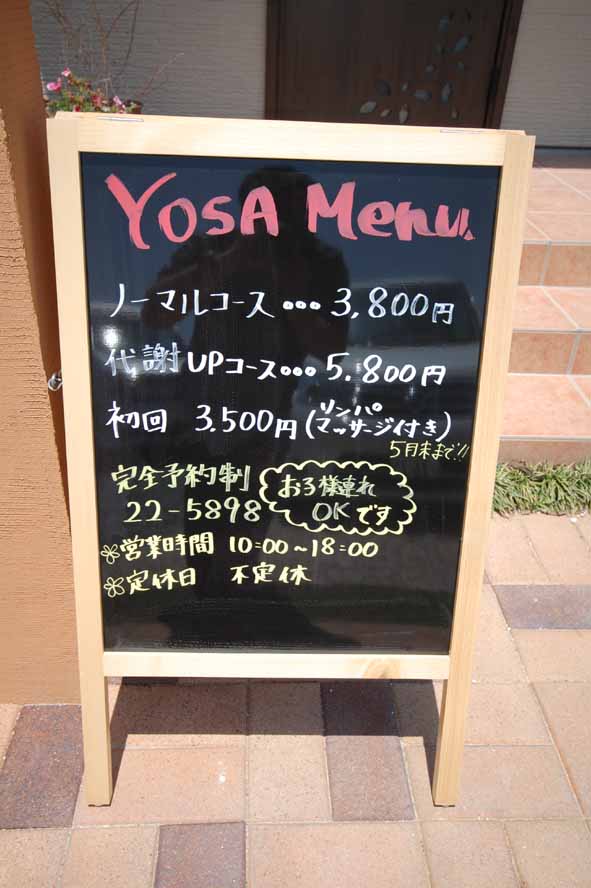 YOSA Menu.
ノーマルコース•••3,800円
代謝UPコース•••5.800円
初回 3.500円(リンパマッサージ付き)
5月末まで!!
完全予約制
22-5898
お子様連れ
OKです
営業時間 10:00~18:00
定休日 不定休